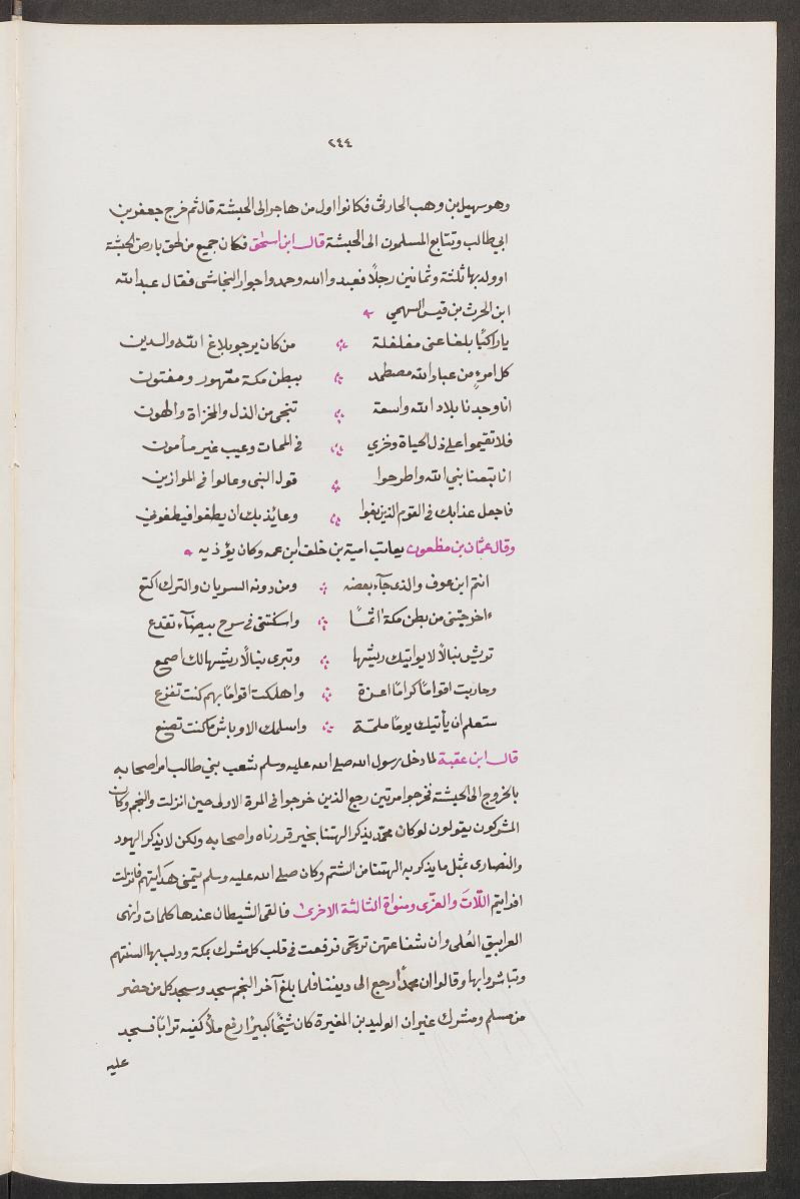 ٢٤٤
وهو سهيل بن وهب الحارثى فكانوا اول من هاجر الى الحبشة قال ثم خرج جعفر بن
ابي طالب وتتابع المسلمون الى الحبشة قال ابن اسحق فكان جميع من لحق بارض الحبشة
او ولد بها ثلثة وثمانين رجلًا فعبدوا الله وحمدوا جوار النجاشى فقال عبد الله
ابن الحرث بن قيس السهمي
ياراكبًا بلغا عنى مغلغلة من كان يرجو بلاغ الله والدين
كل امرءٍ من عباد الله مضطهد ببطن مكة مقهور ومفتون
انا وجدنا بلاد الله واسعة تنجى من الذل والمخزاة والهون
فلا تقيموا على ذل الحياة وخزي فى الممات وعيب غير مأمون
انا تبعنا نبي الله واطرحوا قول النبى وعالوا فى الموازين
فاجعل عذابك فى القوم الذين بغوا وعائذ بك ان يطغوا فيطغونى
وقال عثمان بن مظعون يعاتب امية بن خلف ابن عمه وكان يؤذيه
انتم ابن عوف والذى جآء بعضه ومن دونه السويان والترك اكتع
ءاخرجتنى من بطن مكة اثمًا واسكنتنى فى سرح بيضآء تقدع
تريش نبالًا لا يواتيك ريشها وتبرى نبالًا ريشها لك اجمع
وحاربت اقوامًا كرامًا اعزة واهلكت اقوامًا بهم كنت تفزع
ستعلم ان يأتيك يومًا ملمّة واسلمك الاوباش ما كنت تصنع
قال ابن عقبة لما دخل رسول الله صلى الله عليه وسلم شعب بني طالب امر اصحابه
بالخروج الى الحبشة فخرجوا مرتين رجع الذين خرجوا فى المرة الاولى حين انزلت والنجم وكان
المشركون يقولون لو كان محمّد يذكر الهتنا بخير قررناه واصحابه ولكن لا يذكر اليهود
والنصارى بمثل ما يذكر به الهتنا من الشتم وكان صلى الله عليه وسلم يتمنى هدايتهم فانزلت
افرايتم اللّات والعزّى ومنواة الثالثة الاخرى فالقى الشيطان عندها كلمات وانهى
الغرانيق العُلى وان شفاعتهن ترتجى فوقعت فى قلب كل مشرك بمكة ودلب بها السنتهم
وتباشروا بها وقالوا ان محمدًا رجع الى ديننا فلما بلغ آخر النجم سجد وسجد كل من حضر
من مسلم ومشرك غير ان الوليد بن المغيرة كان شيخًا كبيرًا رفع ملأ كفيه ترابًا فسجد
عليه